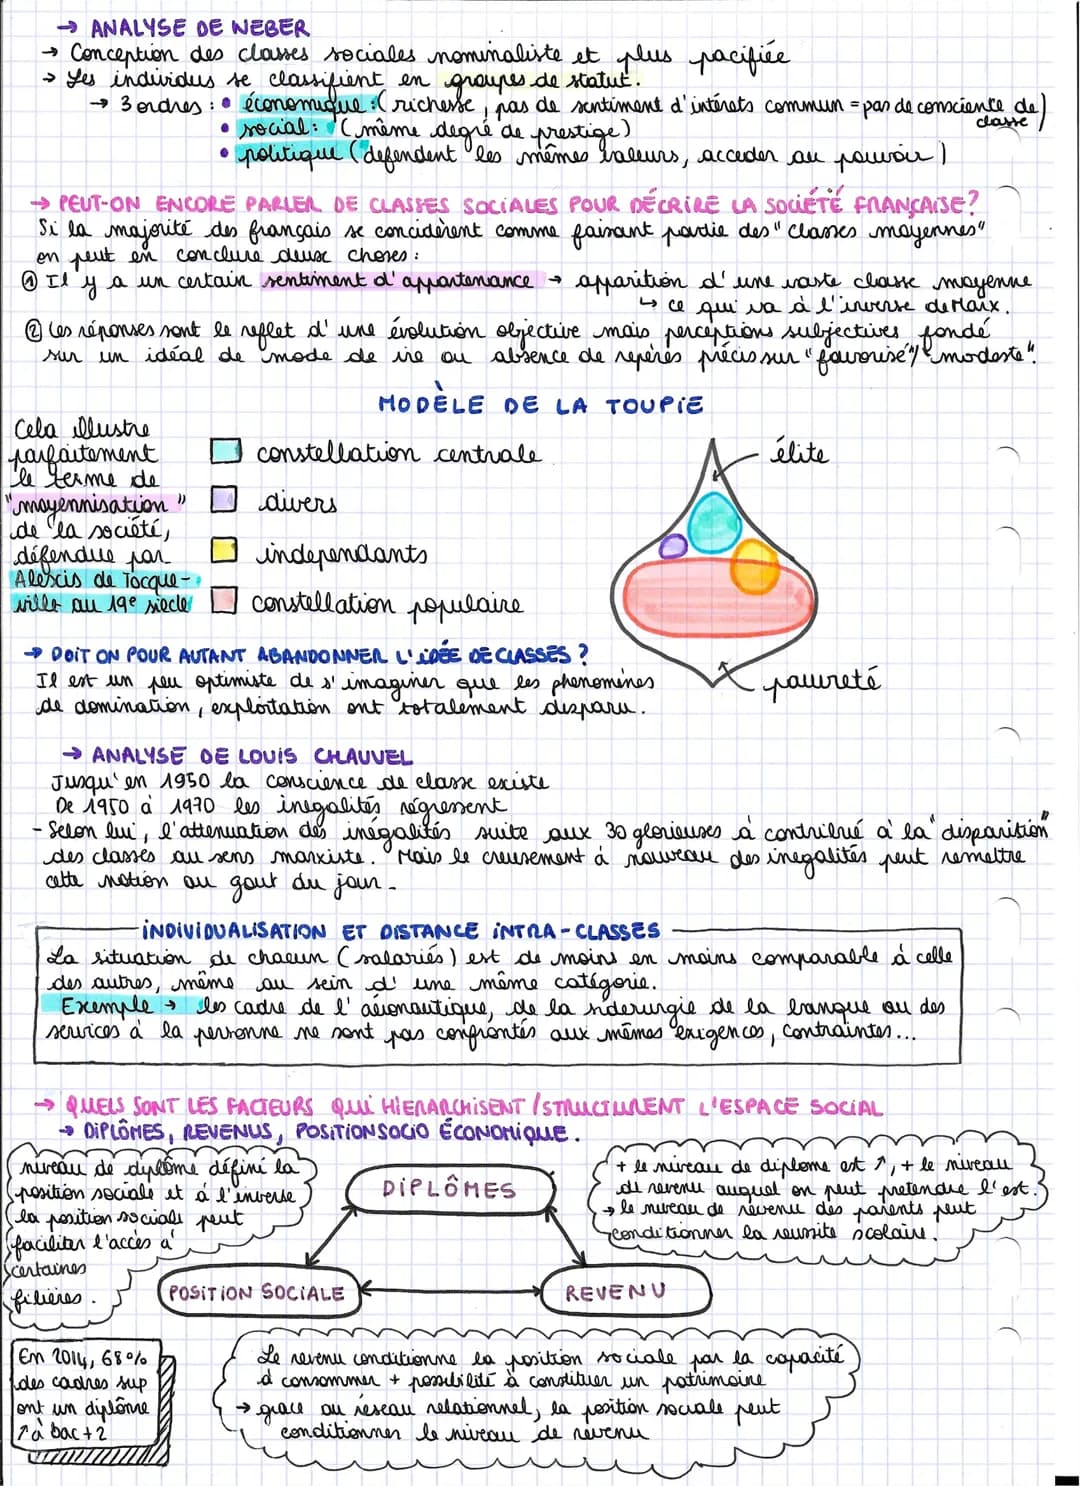 → ANALYSE DE WEBER
→ Conception des classes sociales nominaliste et plus pacifiée
→ Les individus se classifient en groupes de statut.
→ 3 ordres : • économique : ( richesse, pas de sentiment d'intérats commun = pas de conscience de classe )
• social : ( même degré de prestige )
• politique ( défendent les mêmes valeurs, acceder au pouvoir )
→ PEUT-ON ENCORE PARLER DE CLASSES SOCIALES POUR DÉCRIRE LA SOCIÉTÉ FRANÇAISE ?
Si la majorité des français se concidèrent comme faisant partie des "classes moyennes"
on peut en conclure deux choses :
① Il y a un certain sentiment d'appartenance → apparition d'une vaste classe moyenne
↳ ce qui va à l'inverse de Marx.
② Les réponses sont le reflet d'une évolution objective mais perceptions subjectives fondé
sur un idéal de mode de vie ou absence de repères précis sur "favorisé"/"modeste".
MODÈLE DE LA TOUPIE
Cela illustre
parfaitement
le terme de
"moyennisation"
de la société,
défendue par
Alexis de Tocque-
ville au 19e siècle
constellation centrale
divers
independants
constellation populaire
élite
pauvreté
→ DOIT ON POUR AUTANT ABANDONNER L'IDÉE DE CLASSES ?
Il est un peu optimiste de s'imaginer que les phenomènes
de domination, exploitation ont totalement disparu.
→ ANALYSE DE LOUIS CHAUVEL
Jusqu'en 1950 la conscience de classe existe
De 1950 à 1970 les inégalités régressent
- Selon lui, l'attenuation des inégalités suite aux 30 glorieuses à contribué à la "disparition"
des classes au sens marxiste. Mais le creusement à nouveau des inegalités peut remettre
cette notion au gout du jour.
INDIVIDUALISATION ET DISTANCE INTRA-CLASSES
La situation de chacun (salariés) est de moins en moins comparable à celle
des autres, même au sein d'une même catégorie.
Exemple → les cadre de l'aéronautique, de la siderurgie de la banque ou des
services à la personne ne sont pas confrontés aux mêmes exigences, contraintes...
→ QUELS SONT LES FACTEURS QUI HIERARCHISENT / STRUCTURENT L'ESPACE SOCIAL
→ DIPLÔMES, REVENUS, POSITION SOCIO ÉCONOMIQUE.
niveau de dyplôme défini la
position sociale et à l'inverse
la position sociale peut
faciliter l'accès à
certaines
filières.
DIPLÔMES
+ le niveau de diplome est ↗, + le niveau
de revenu auquel on peut pretendre l'est.
→ le niveau de revenu des parents peut
conditionner la reussite scolaire.
POSITION SOCIALE
REVENU
En 2014, 68%
des cadres sup
ont un diplôme
↗ à bac+2
Le revenu conditionne la position sociale par la capacité
d consommer + possibilité à constituer un patrimoine
→ grace au réseau relationnel, la position sociale peut
conditionner le niveau de revenu